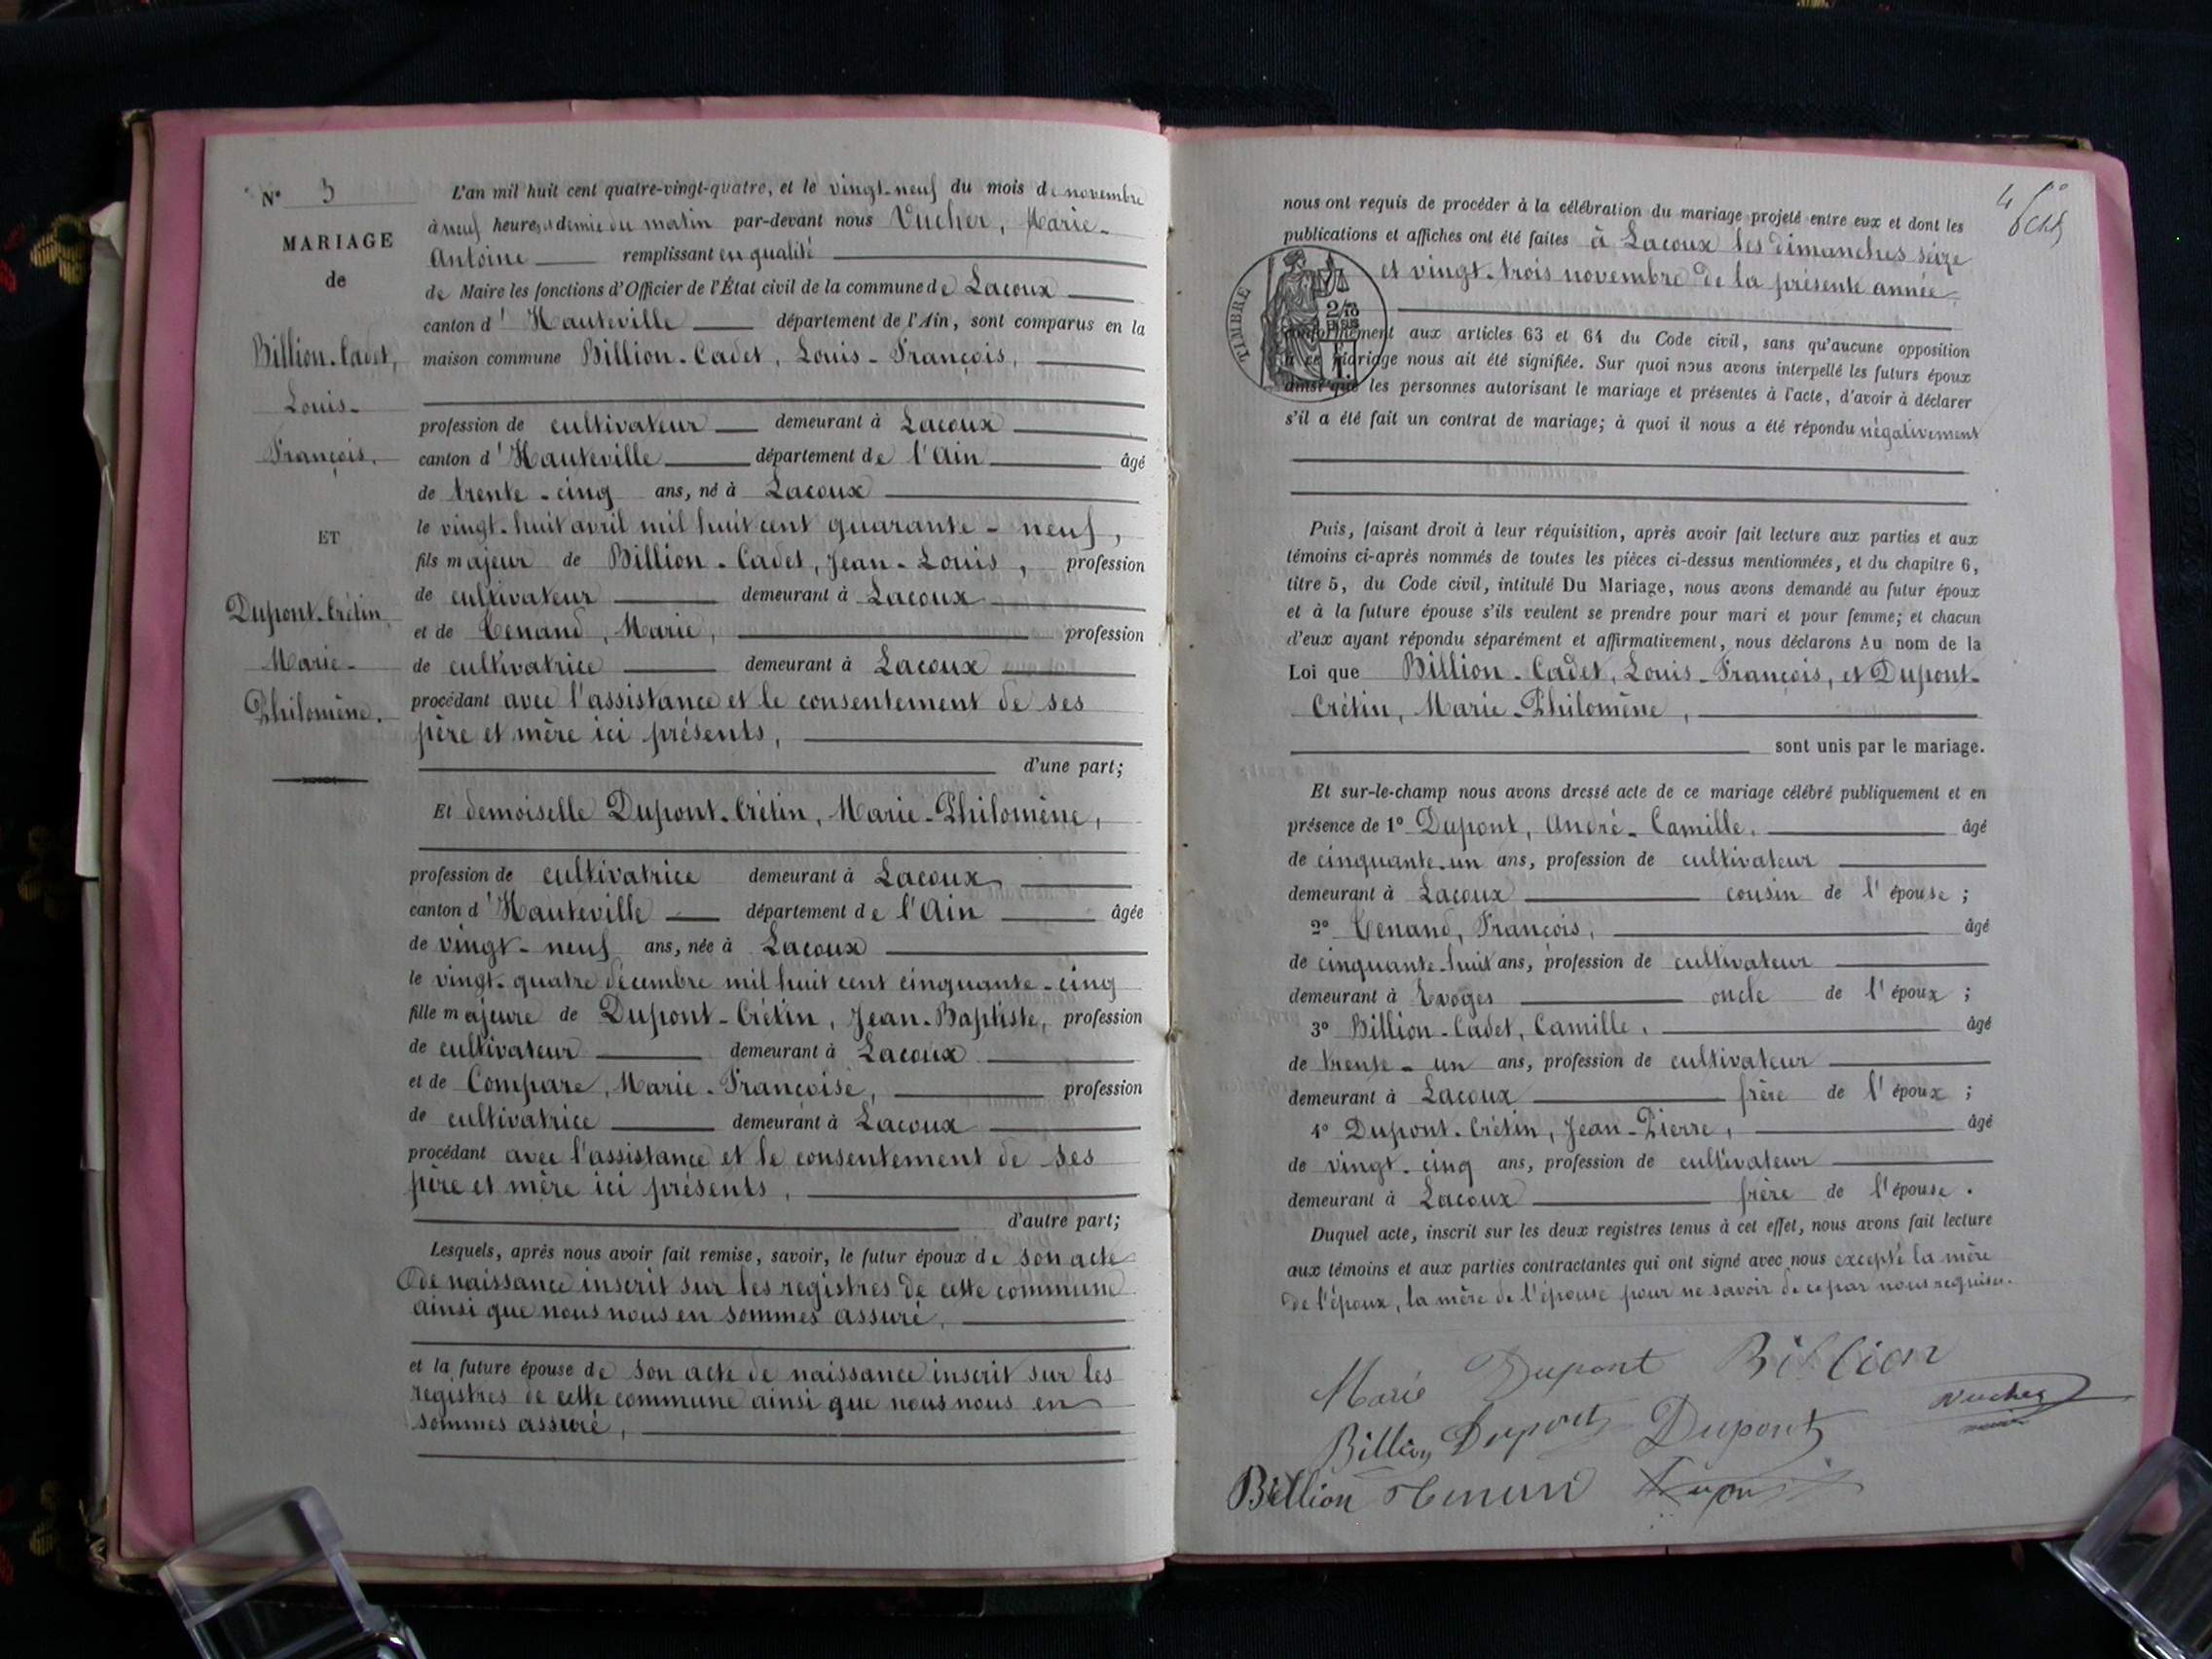 N° 3
MARIAGE
de
Billion-Cadet,
Louis-
François,
ET
Dupont-Crétin,
Marie-
Philomène.
L'an mil huit cent quatre-vingt-quatre, et le vingt-neuf du mois de novembre
à neuf heures et demie du matin par-devant nous Vucher, Marie-
Antoine remplissant en qualité
de Maire les fonctions d'Officier de l'État civil de la commune de Lacoux
canton d'Hauteville département de l'Ain, sont comparus en la
maison commune Billion-Cadet, Louis-François,
profession de cultivateur demeurant à Lacoux
canton d'Hauteville département de l'Ain âgé
de trente-cinq ans, né à Lacoux
le vingt-huit avril mil huit cent quarante-neuf,
fils majeur de Billion-Cadet, Jean-Louis, profession
de cultivateur demeurant à Lacoux
et de Tenand, Marie, profession
de cultivatrice demeurant à Lacoux
procédant avec l'assistance et le consentement de ses
père et mère ici présents,
d'une part;
Et demoiselle Dupont-Crétin, Marie-Philomène,
profession de cultivatrice demeurant à Lacoux,
canton d'Hauteville département de l'Ain âgée
de vingt-neuf ans, née à Lacoux
le vingt-quatre décembre mil huit cent cinquante-cinq
fille majeure de Dupont-Crétin, Jean-Baptiste, profession
de cultivateur demeurant à Lacoux
et de Compare, Marie-Françoise, profession
de cultivatrice demeurant à Lacoux
procédant avec l'assistance et le consentement de ses
père et mère ici présents,
d'autre part;
Lesquels, après nous avoir fait remise, savoir, le futur époux de son acte
de naissance inscrit sur les registres de cette commune
ainsi que nous nous en sommes assuré,
et la future épouse de son acte de naissance inscrit sur les
registres de cette commune ainsi que nous nous en
sommes assuré,
4
nous ont requis de procéder à la célébration du mariage projeté entre eux et dont les
publications et affiches ont été faites à Lacoux les dimanches seize
et vingt-trois novembre de la présente année,
TIMBRE
2/10
conformément aux articles 63 et 64 du Code civil, sans qu'aucune opposition
à ce mariage nous ait été signifiée. Sur quoi nous avons interpellé les futurs époux
ainsi que les personnes autorisant le mariage et présentes à l'acte, d'avoir à déclarer
s'il a été fait un contrat de mariage; à quoi il nous a été répondu négativement
Puis, faisant droit à leur réquisition, après avoir fait lecture aux parties et aux
témoins ci-après nommés de toutes les pièces ci-dessus mentionnées, et du chapitre 6,
titre 5, du Code civil, intitulé Du Mariage, nous avons demandé au futur époux
et à la future épouse s'ils veulent se prendre pour mari et pour femme; et chacun
d'eux ayant répondu séparément et affirmativement, nous déclarons Au nom de la
Loi que Billion-Cadet, Louis-François, et Dupont-
Crétin, Marie-Philomène,
sont unis par le mariage.
Et sur-le-champ nous avons dressé acte de ce mariage célébré publiquement et en
présence de 1° Dupont, André-Camille, âgé
de cinquante-un ans, profession de cultivateur
demeurant à Lacoux cousin de l'épouse;
2° Tenand, François, âgé
de cinquante-huit ans, profession de cultivateur
demeurant à Évoges oncle de l'époux;
3° Billion-Cadet, Camille, âgé
de trente-un ans, profession de cultivateur
demeurant à Lacoux frère de l'époux;
4° Dupont-Crétin, Jean-Pierre, âgé
de vingt-cinq ans, profession de cultivateur
demeurant à Lacoux frère de l'épouse.
Duquel acte, inscrit sur les deux registres tenus à cet effet, nous avons fait lecture
aux témoins et aux parties contractantes qui ont signé avec nous excepté la mère
de l'époux, la mère de l'épouse pour ne savoir de ce par nous requises.
Marie Dupont Billion
Billion Dupont Dupont Vucher
Billion Tenand